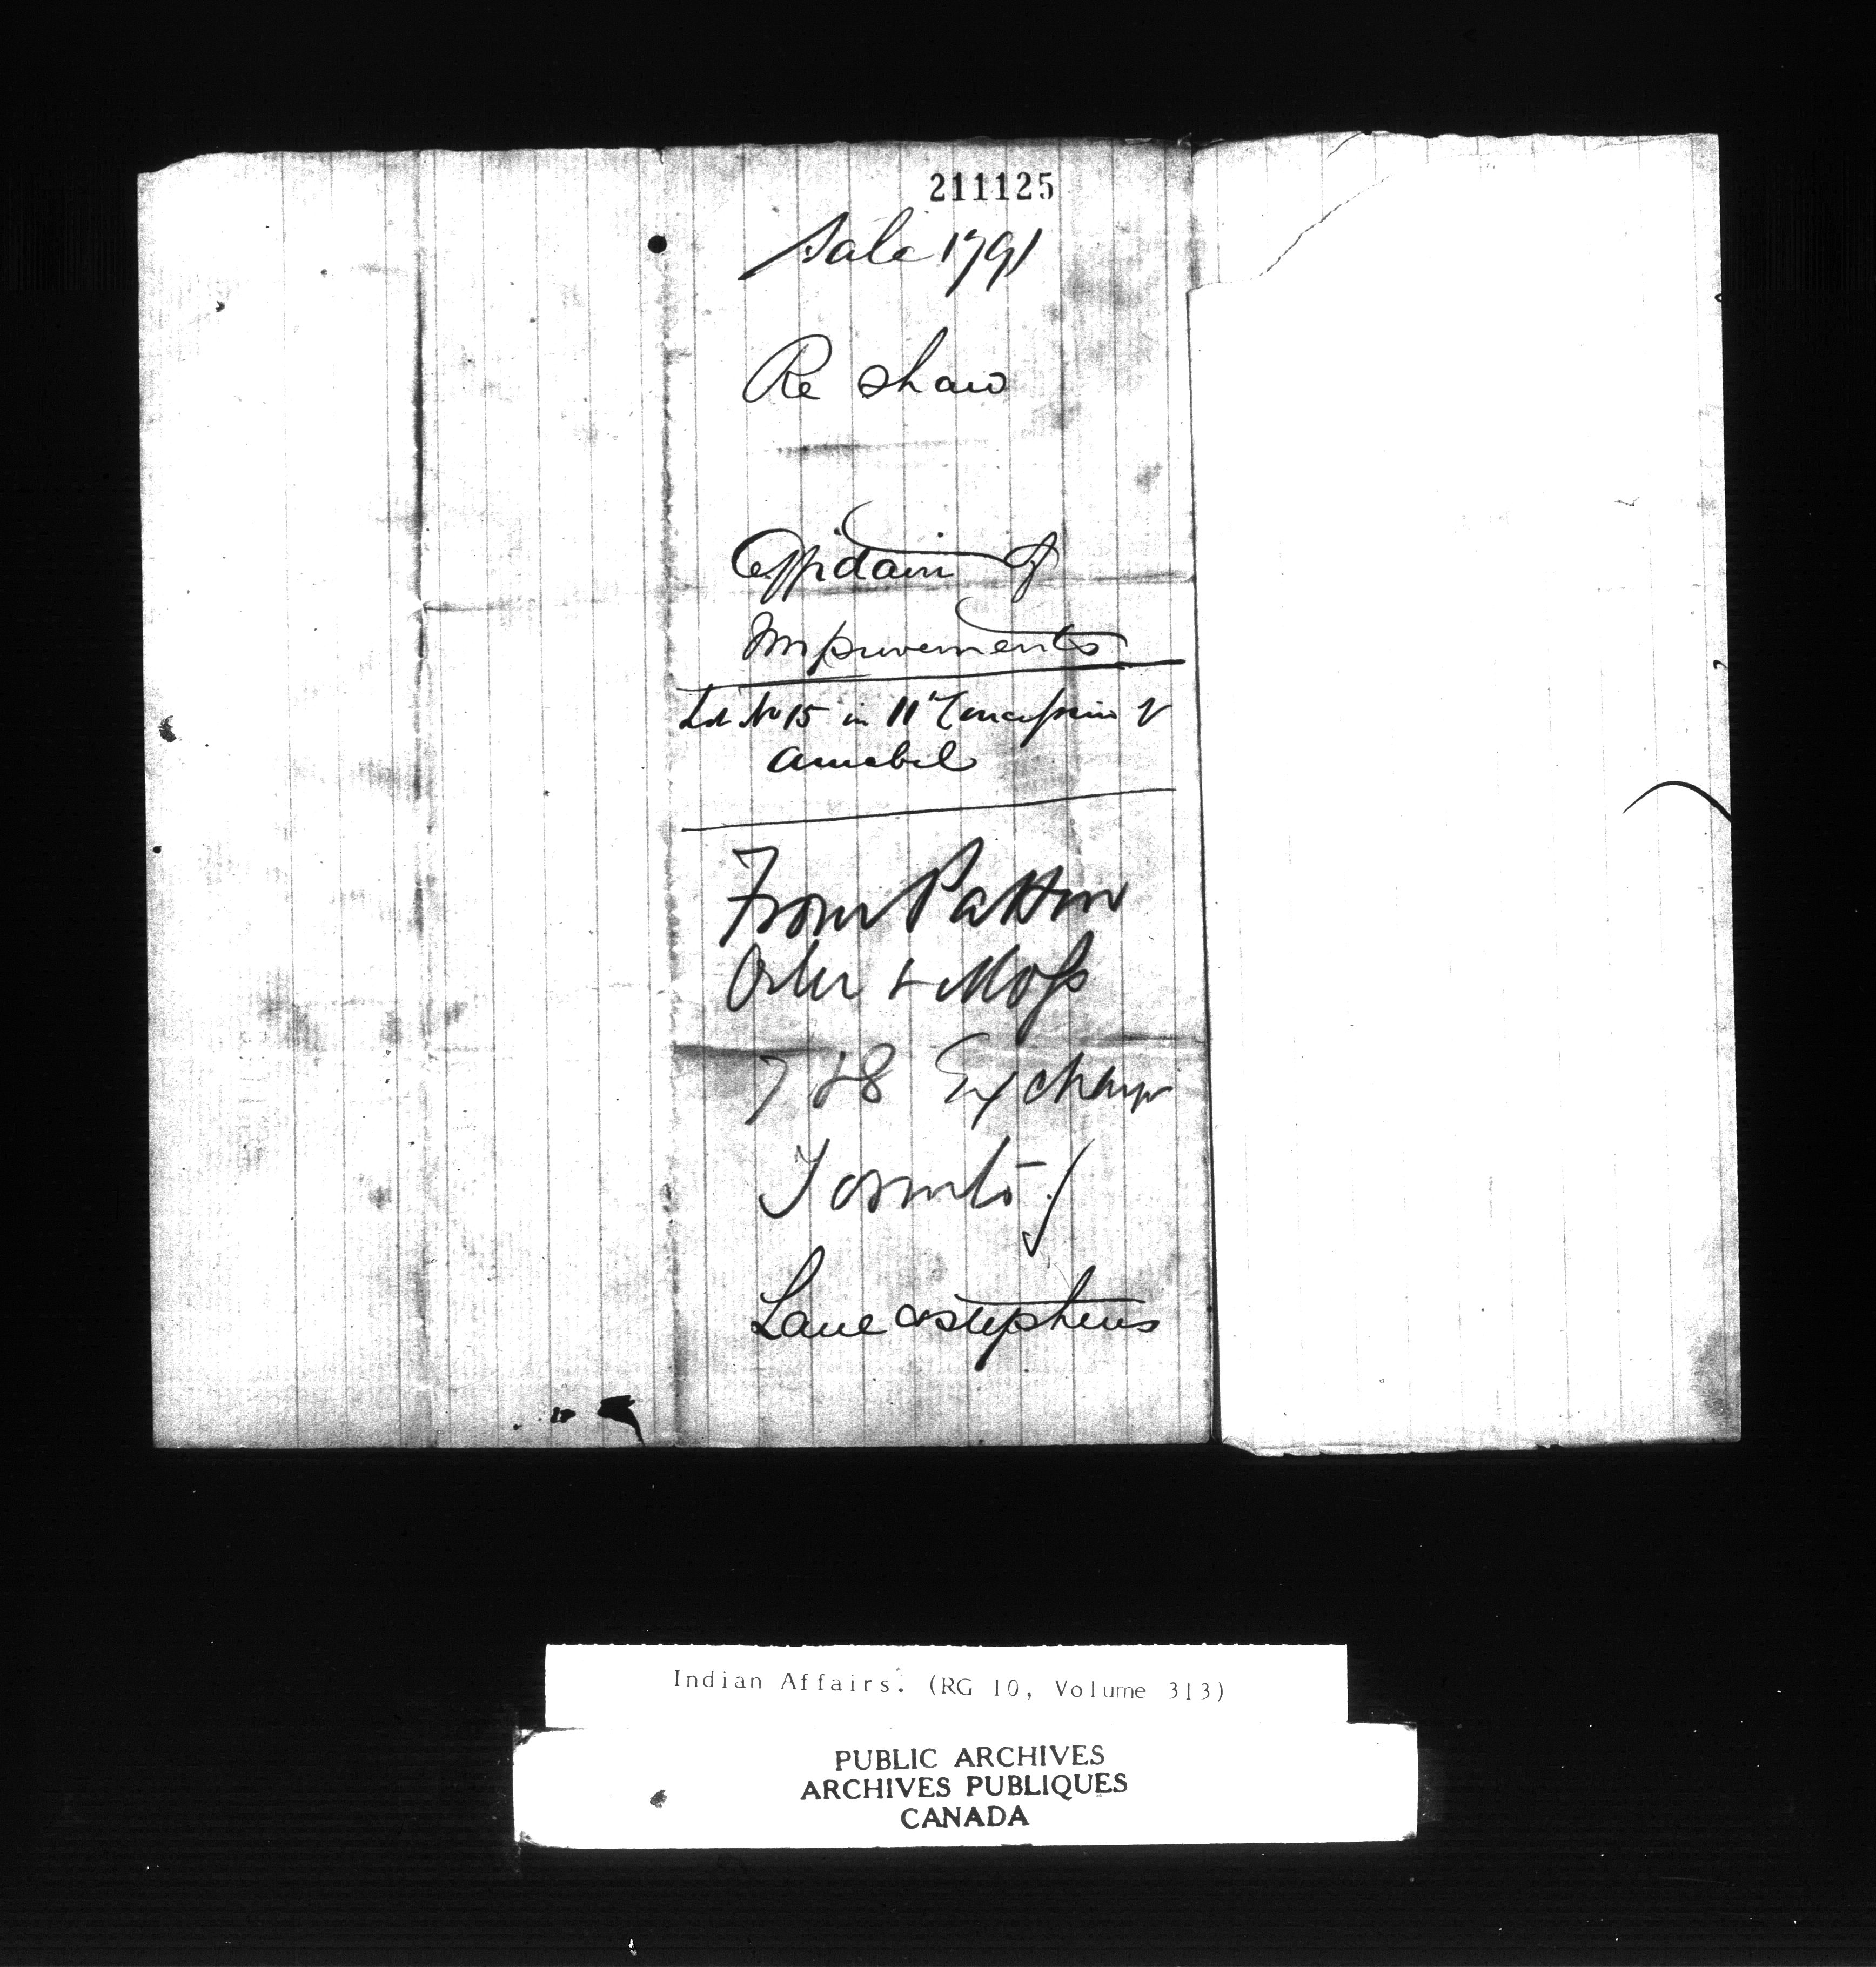 211125
Sale 1791
Re Shaw
Affidavit of
Improvements
Lot No 15 in 11th Concession of
Amabel
From Patton
Osler & Moss
7 & 8 Exchange
Toronto
Lane & Stephens
Indian Affairs. (RG 10, Volume 313)
PUBLIC ARCHIVES
ARCHIVES PUBLIQUES
CANADA